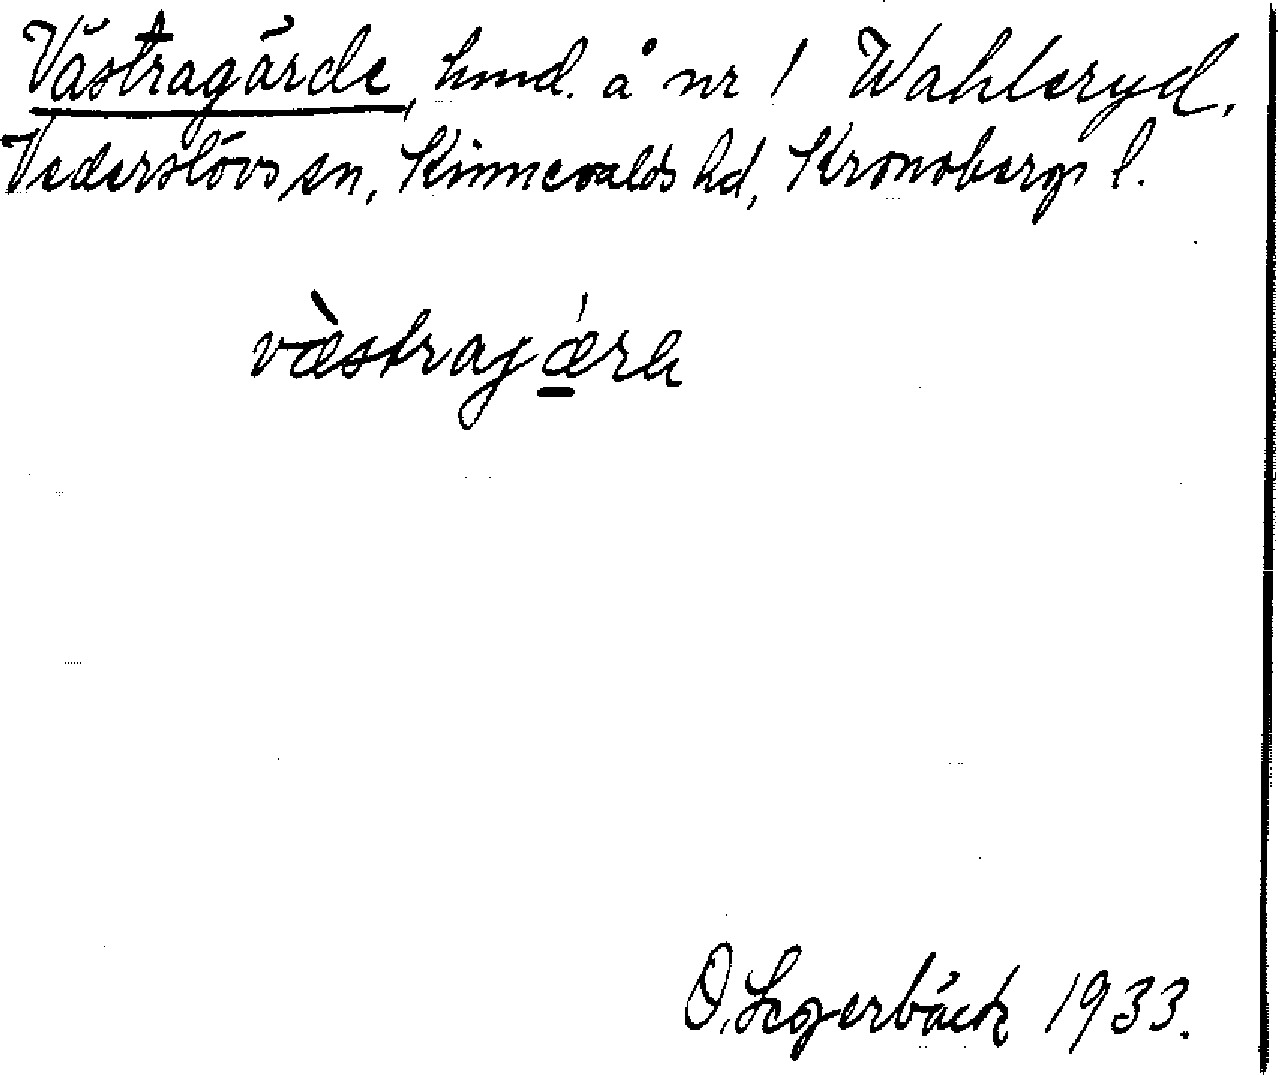 Västragärde, hmd. å nr 1 Wahlsryd,
Vederslövs sn, Kinnevalds hd, Kronobergs l.
væ̀strajǽra
O. Segerbäck 1933.